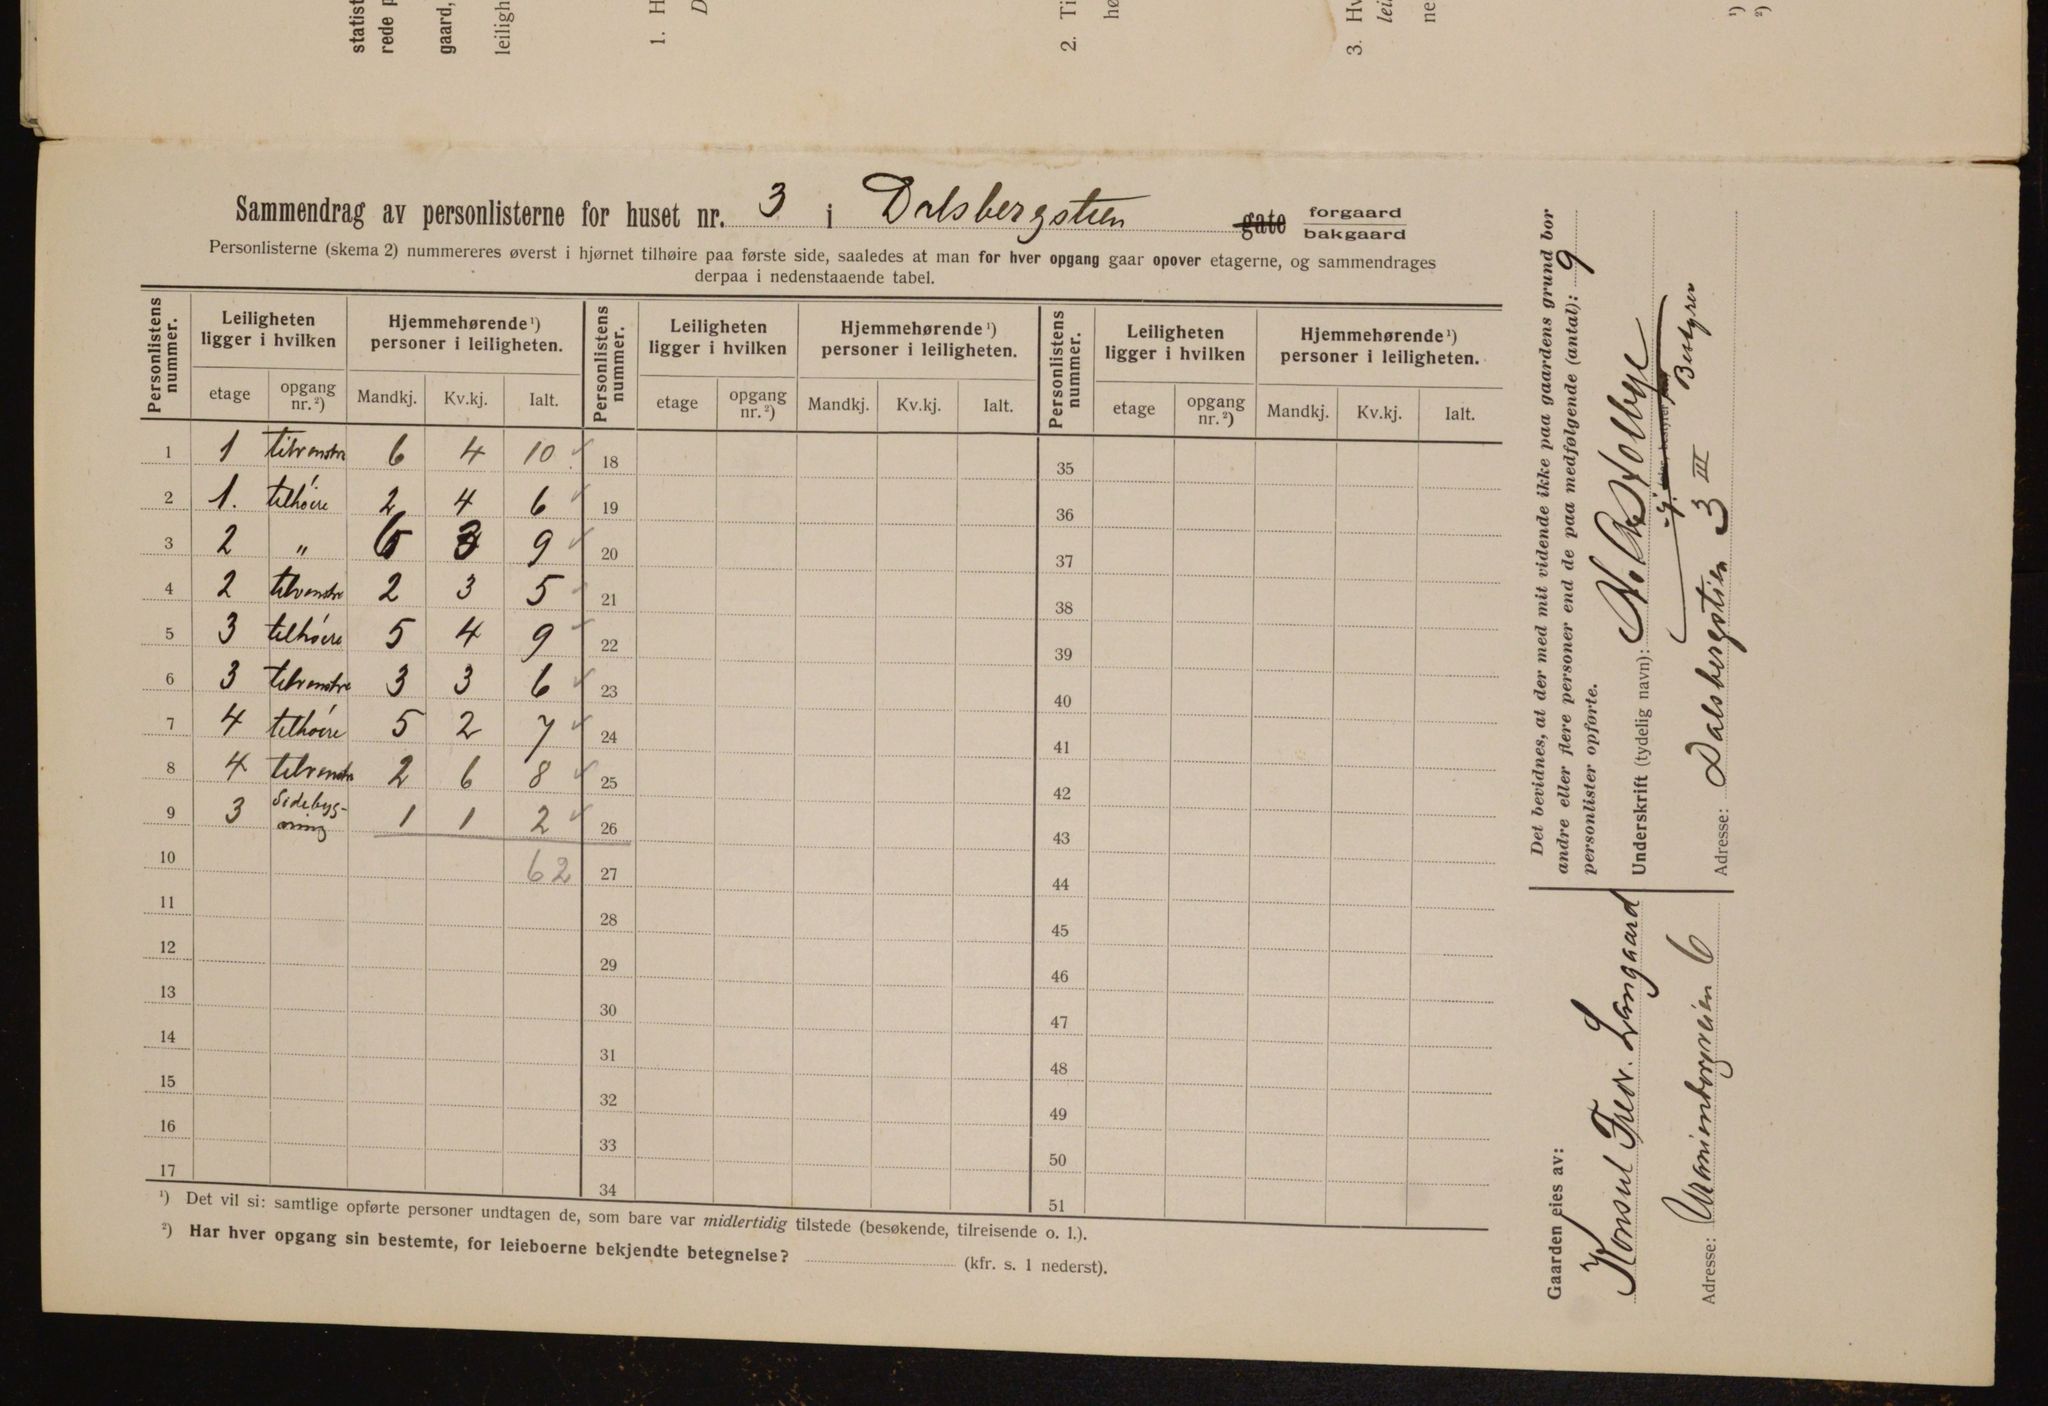 statist
rede p
gaard,
leiligh
1. H
D
2. Ti
hø
3. Hv
lei
ne
1)
2)
Sammendrag av personlisterne for huset nr. 3 i Dalsbergstien gate forgaard bakgaard
Personlisterne (skema 2) nummereres øverst i hjørnet tilhøire paa første side, saaledes at man for hver opgang gaar opover etagerne, og sammendrages
derpaa i nedenstaaende tabel.
Personlistens nummer. Leiligheten ligger i hvilken Hjemmehørende 1) personer i leiligheten. Personlistens nummer. Leiligheten ligger i hvilken Hjemmehørende 1) personer i leiligheten. Personlistens nummer. Leiligheten ligger i hvilken Hjemmehørende 1) personer i leiligheten.
etage opgang nr. 2) Mandkj. Kv.kj. Ialt. etage opgang nr. 2) Mandkj. Kv.kj. Ialt. etage opgang nr. 2) Mandkj. Kv.kj. Ialt.
1 1 tilvenstre 6 4 10 18 35
2 1. tilhøire 2 4 6 19 36
3 2 „ 6 3 9 20 37
4 2 tilvenstre 2 3 5 21 38
5 3 tilhøire 5 4 9 22 39
6 3 tilvenstre 3 3 6 23 40
7 4 tilhøire 5 2 7 24 41
8 4 tilvenstre 2 6 8 25 42
9 3 Sidebygning 1 1 2 26 43
10 62 27 44
11 28 45
12 29 46
13 30 47
14 31 48
15 32 49
16 33 50
17 34 51
1) Det vil si: samtlige opførte personer undtagen de, som bare var midlertidig tilstede (besøkende, tilreisende o. l.).
2) Har hver opgang sin bestemte, for leieboerne bekjendte betegnelse? (kfr. s. 1 nederst).
Det bevidnes, at der med mit vidende ikke paa gaardens grund bor
andre eller flere personer end de paa medfølgende (antal): 9
personlister opførte.
Underskrift (tydelig navn):
Bestyrer
Adresse: Dalsbergstien 3 III
Gaarden eies av:
Konsul Fredr. Langaard
Adresse: Uranienborgveien 6